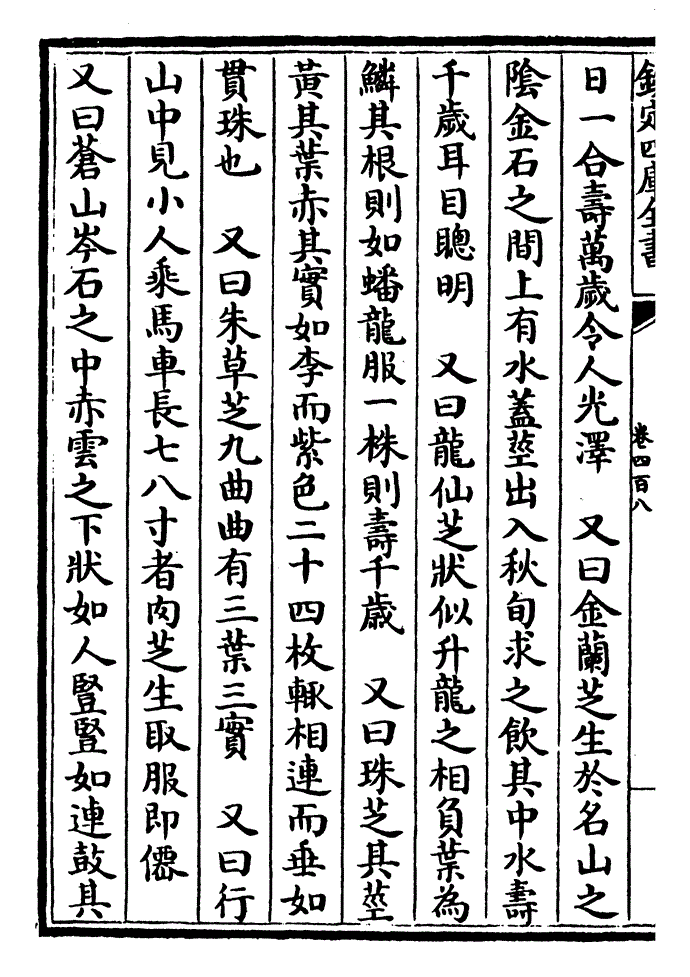 欽定四庫全書
卷四百八
日一合壽萬歲令人光澤　又曰金蘭芝生於名山之
陰金石之間上有水蓋莖出入秋旬求之飲其中水壽
千歲耳目聰明　又曰龍仙芝狀似升龍之相負葉為
鱗其根則如蟠龍服一株則壽千歲　又曰珠芝其莖
黃其葉赤其實如李而紫色二十四枚輒相連而垂如
貫珠也　又曰朱草芝九曲曲有三葉三實　又曰行
山中見小人乘馬車長七八寸者肉芝生取服即僊
又曰蒼山岑石之中赤雲之下狀如人豎豎如連鼓其